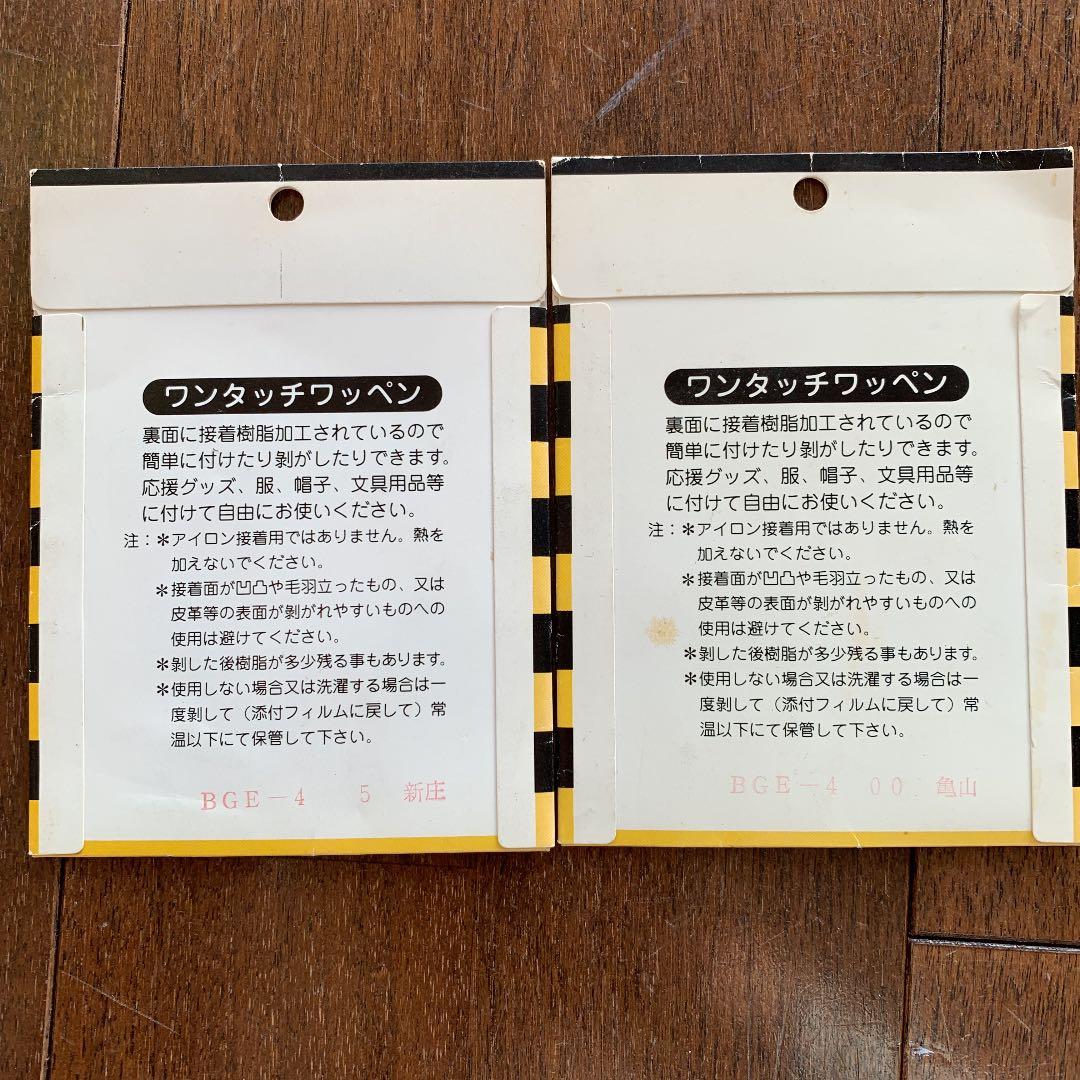 ワンタッチワッペン
裏面に接着樹脂加工されているので
簡単に付けたり剥がしたりできます。
応援グッズ、服、帽子、文具用品等
に付けて自由にお使いください。
注：＊アイロン接着用ではありません。熱を
加えないでください。
＊接着面が凹凸や毛羽立ったもの、又は
皮革等の表面が剥がれやすいものへの
使用は避けてください。
＊剥した後樹脂が多少残る事もあります。
＊使用しない場合又は洗濯する場合は一
度剥して（添付フィルムに戻して）常
温以下にて保管して下さい。
BGE－4 5 新庄
ワンタッチワッペン
裏面に接着樹脂加工されているので
簡単に付けたり剥がしたりできます。
応援グッズ、服、帽子、文具用品等
に付けて自由にお使いください。
注：＊アイロン接着用ではありません。熱を
加えないでください。
＊接着面が凹凸や毛羽立ったもの、又は
皮革等の表面が剥がれやすいものへの
使用は避けてください。
＊剥した後樹脂が多少残る事もあります。
＊使用しない場合又は洗濯する場合は一
度剥して（添付フィルムに戻して）常
温以下にて保管して下さい。
BGE－4 00 亀山